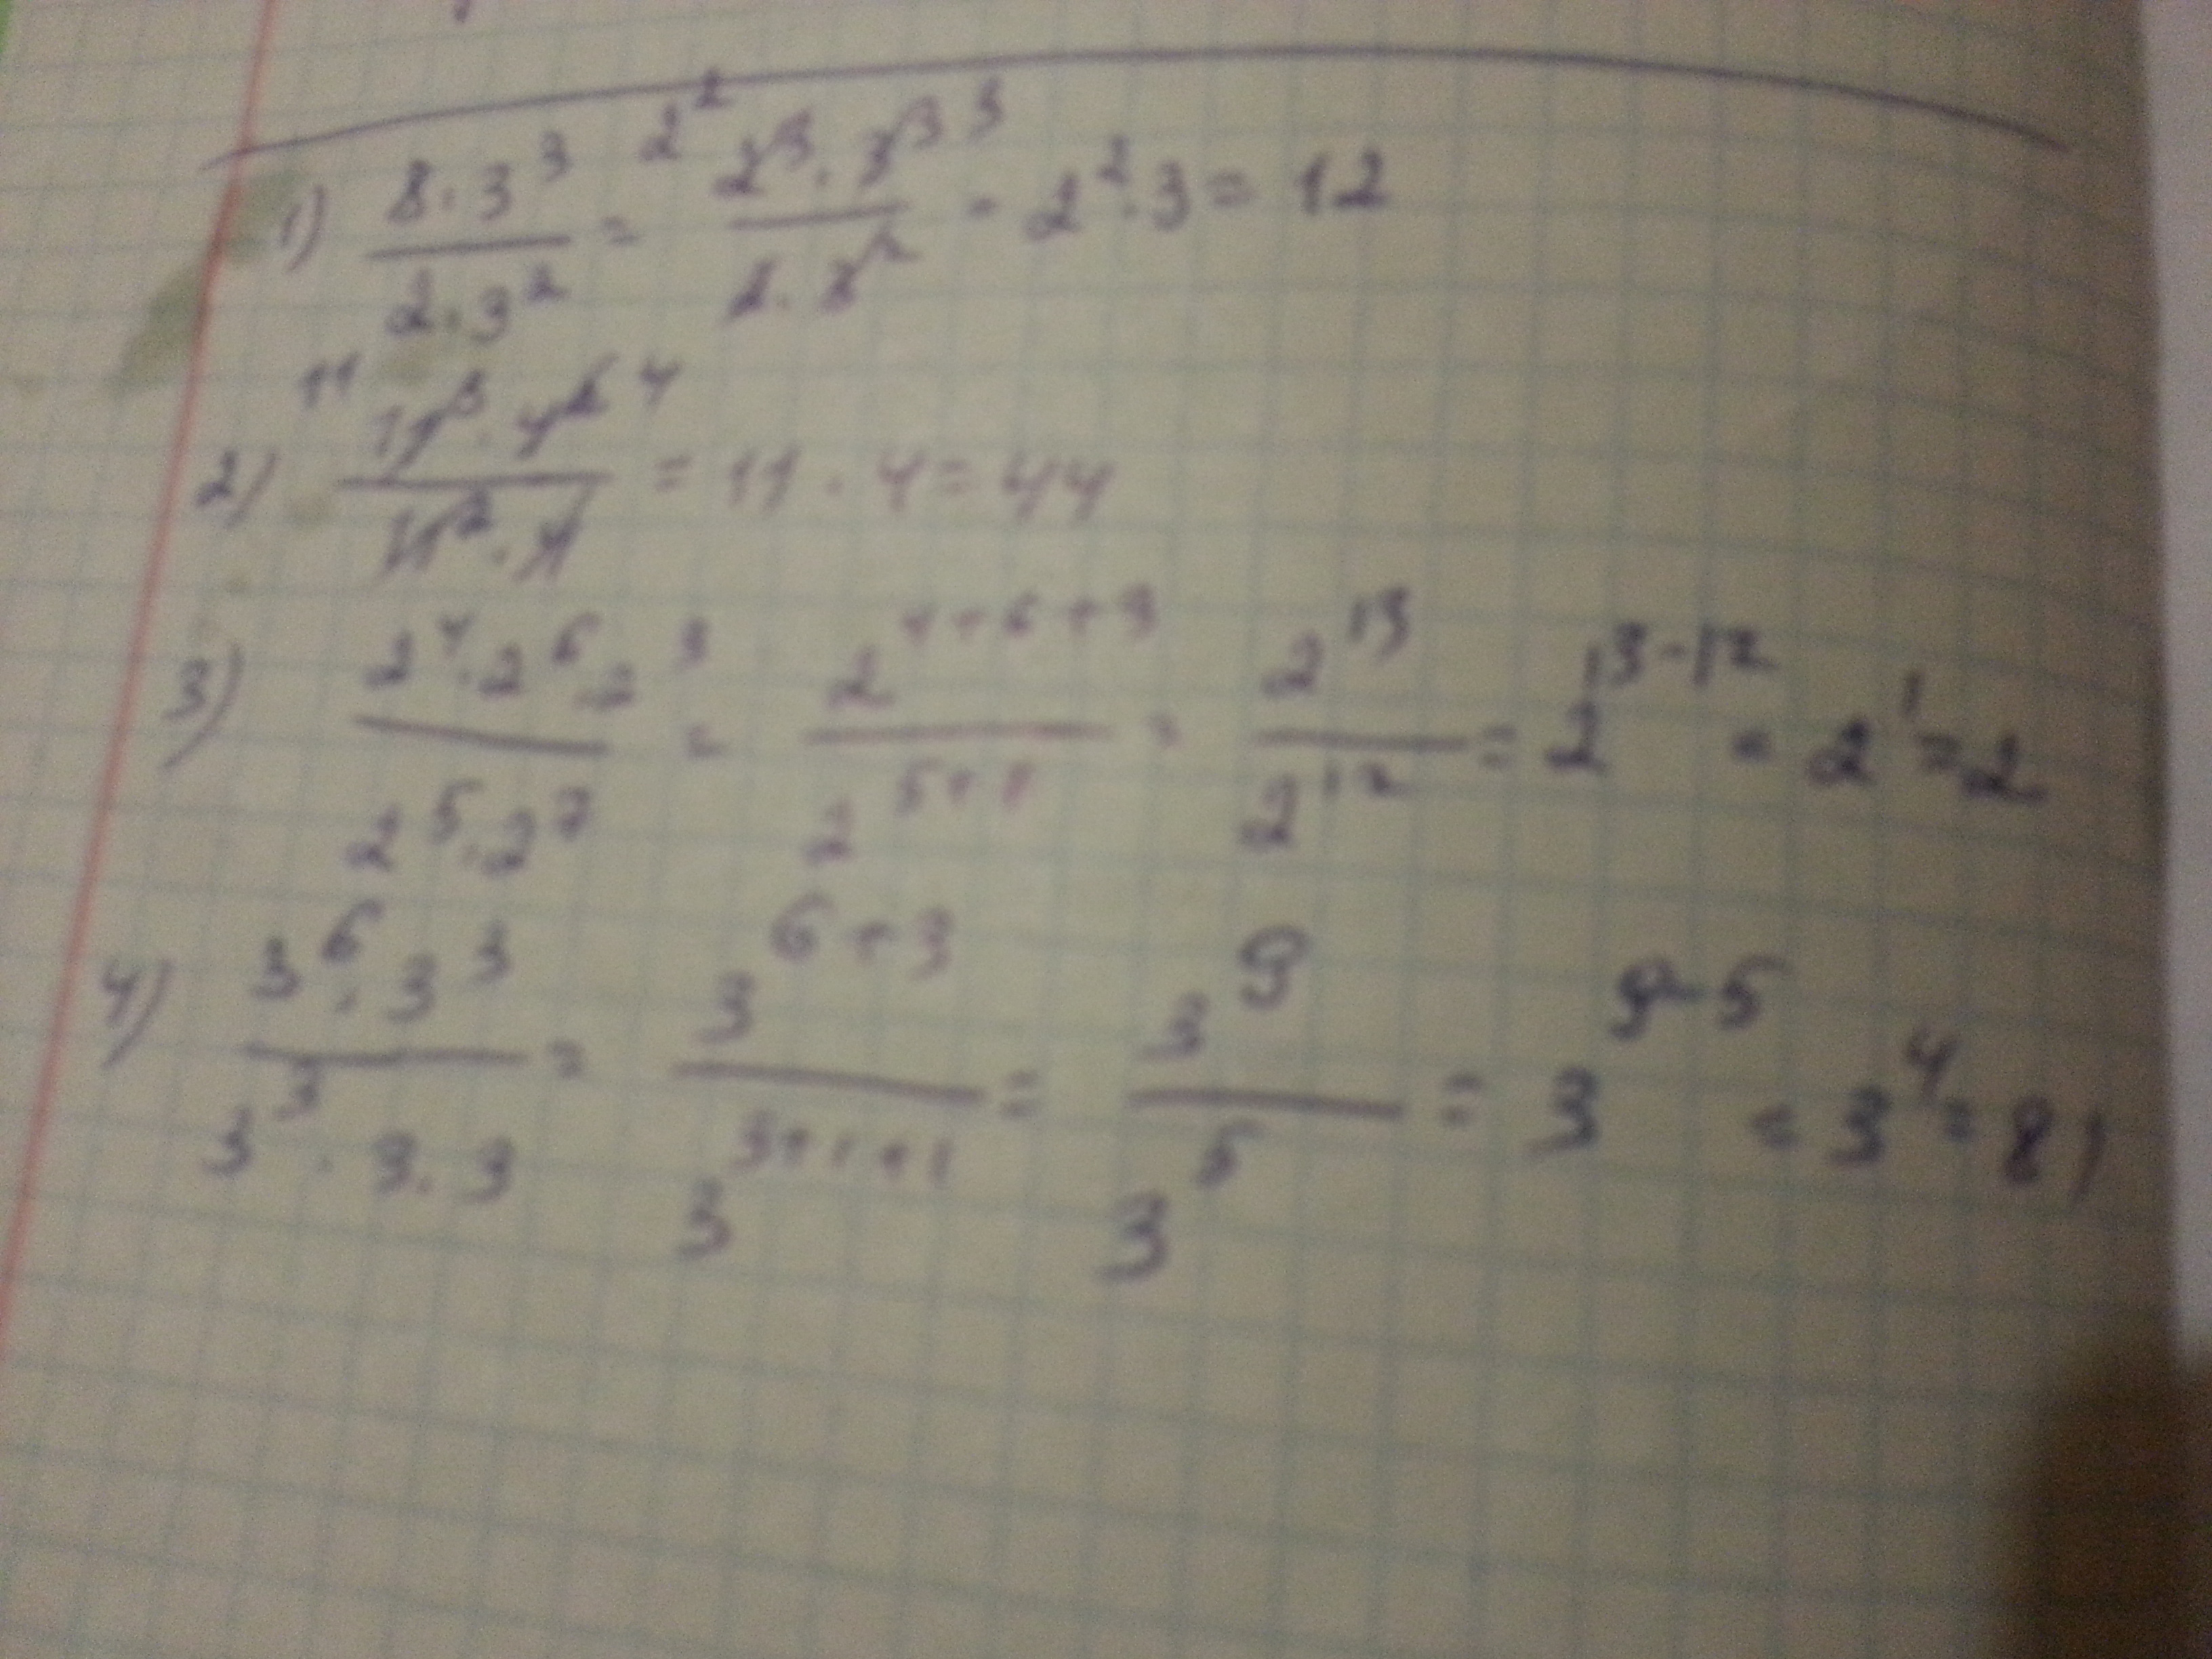 1) (8·3^3)/(2·3^2) = 2^2 (2^3·3^3)/(2·3^2) 3 = 2^2·3 = 12
2) 11 (11^3·4^2)/(11^2·4) 4 = 11·4 = 44
3) (2^4·2^6·2^3)/(2^5·2^7) = 2^(4+6+3)/2^(5+7) = 2^13/2^12 = 2^(13-12) = 2^1 = 2
4) (3^6·3^3)/(3^3·3·3) = 3^(6+3)/3^(3+1+1) = 3^9/3^5 = 3^(9-5) = 3^4 = 81